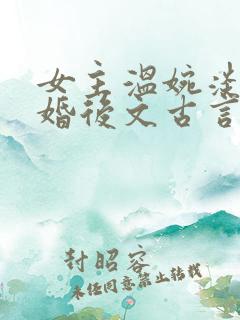 女主温婉淡
婚後文古言
封昭容
未任同意禁止转载